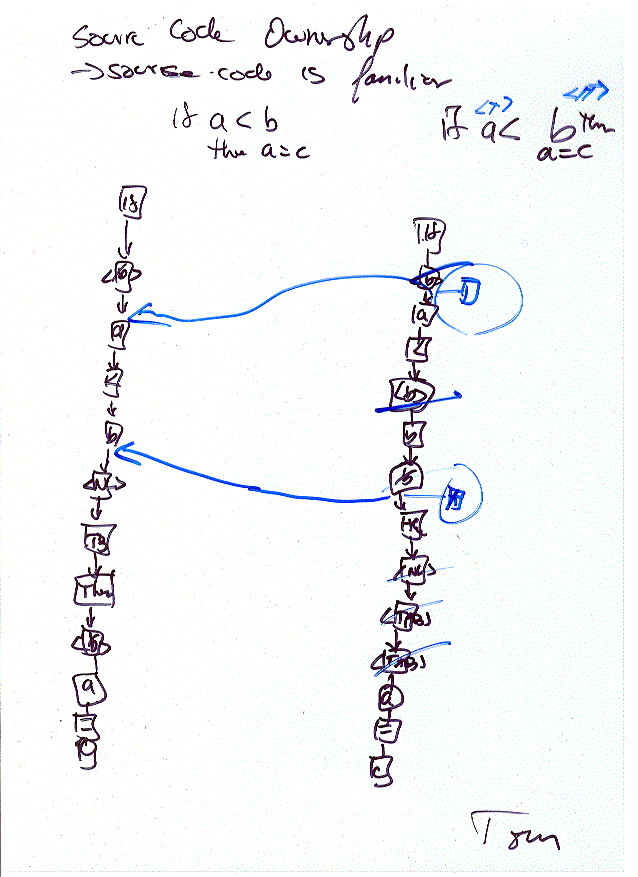 Source Code Ownership
→ source code is familiar
If a < b
then a = c
<T> <M>
If a < b Then
a = c
If
<b>
a
<
b
<N>
TB
Then
<b>
a
=
c
If
<b>
a
<
<b>
b
b
a
=
c
Tom